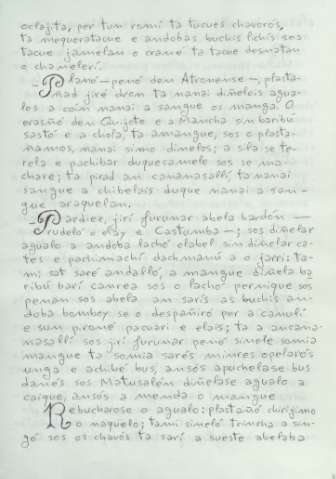 oclajita, per tun romí ta tucues chavorós,
ta mequeratacue e andobas buchís lichís sos
tacue jamelan o crané ta tacue desmatan
o chamelerí.
—Plano—penó den Atronense—, plasta-
ñad jiré drom ta nanai diñelois agua-
los a coin manai a sangue os manga. O
erasñó den Quijote e a Mancha sin baribú
sastó e a chola, ta amangue, sos o plasta-
ñamos, nanai simo dinelos; a sila se te-
rela e pachibar duquecamelo sos se ma-
chare; ta pirad an cananasallí, ta nanai
sangue a chibelais duque nanai a san-
gue araquelan.
—Pardiez, jiré furunar abela bardón —
rudeló o eray e Castumba—; sos diñelar
agualo a andoba lachó elabel sin diñelar ca-
tes e parhimachí dachmanú a o jarri: ta-
mí sat saré andalló, a mangue diñela ba
ribú barí canrea sos o lachó perniqué sos
penan sos abela an sarís as buchís an-
doba bomboy se o despañiró per a camulí
e sun piromé pacuari e elais; ta a ancana-
masallí sos jiré furunar penó sinele somia
mangue ta somia sarés minres opelarés
unga e achibé bus, ansós apuchelase bus
danés sos Matusalén diñelase agualo a
caique, ansós a menda o mangue
Rebucharose o agualo: plastañó chirigimo
o naquelo; tamí sineló trincha a sin-
gó sos os chavós ta sarí a sueste abelaba